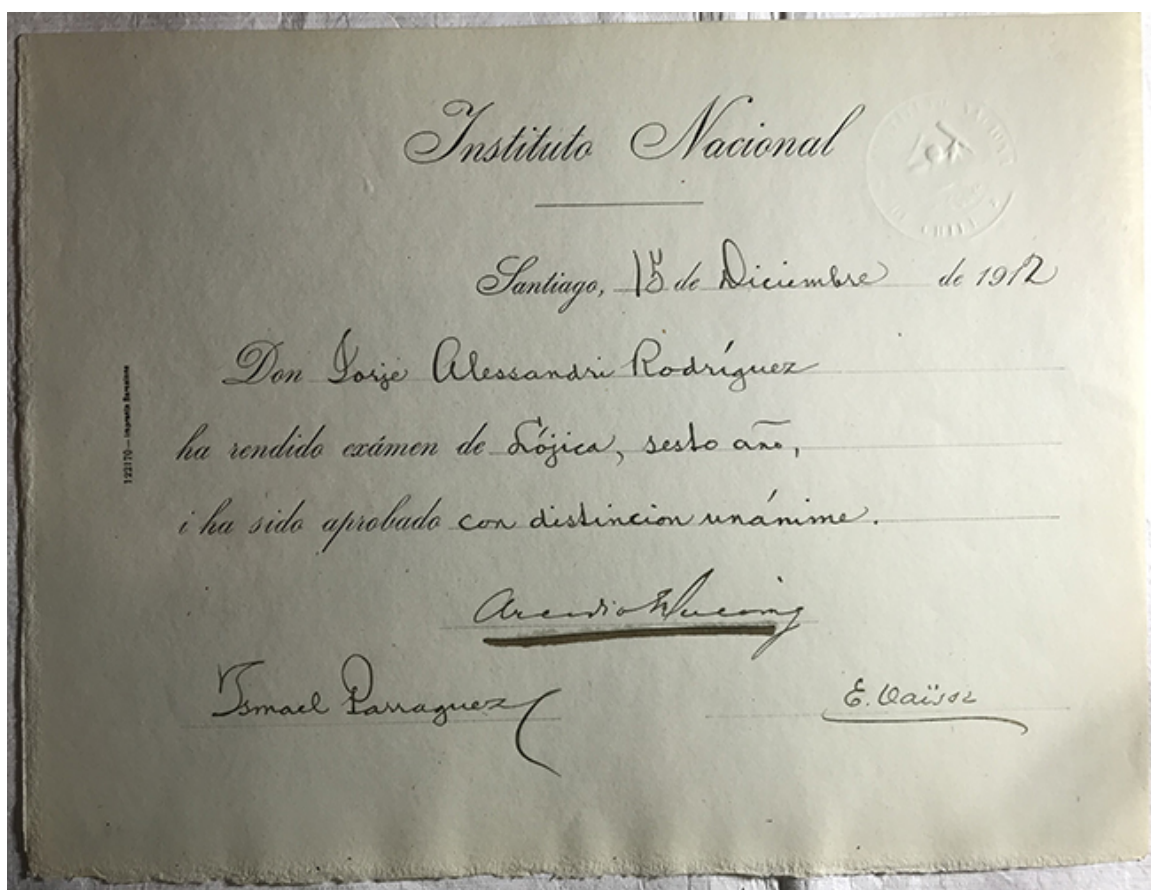 Instituto Nacional
Santiago, 15 de Diciembre de 1912
Don Jorje Alessandri Rodríguez
ha rendido exámen de Lójica, sesto año,
i ha sido aprobado con distincion unánime.
Arcadio Ducoing
Ismael Parraguez
E. Vaïsse
123170—Imprenta Barcelona
CHILE